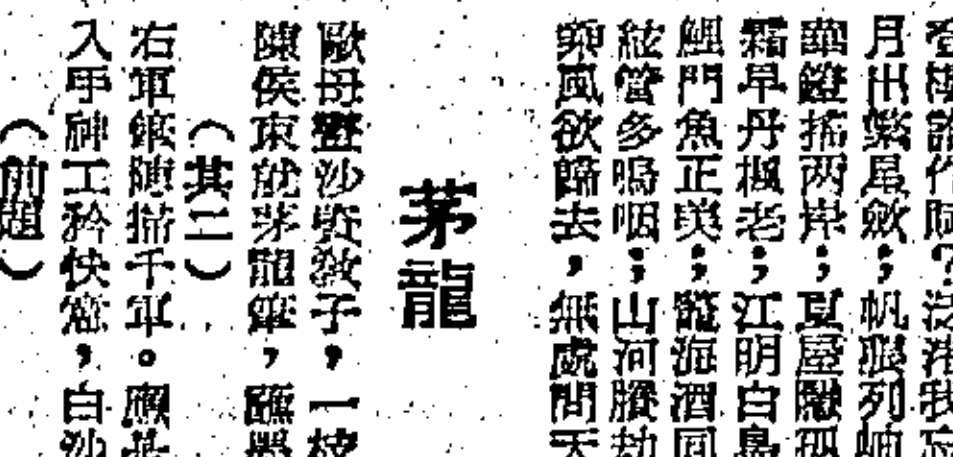 登樓誰作賦?泛渚我忘
月出繁星歛;帆張列岫
華鐙搖两岸;夏屋颺孤
霜早丹楓老;江明白鳥
鯉門魚正美;龍海酒同
絃管多嗚咽;山河賸劫
御風欲歸去,無處問天
茅龍
歐母畫沙賢敎子,一枝
陳侯束就茅龍筆,醮墨
(其二)
右軍銀陣掃千軍。應共
入手神工矜快意,白沙
(前題)